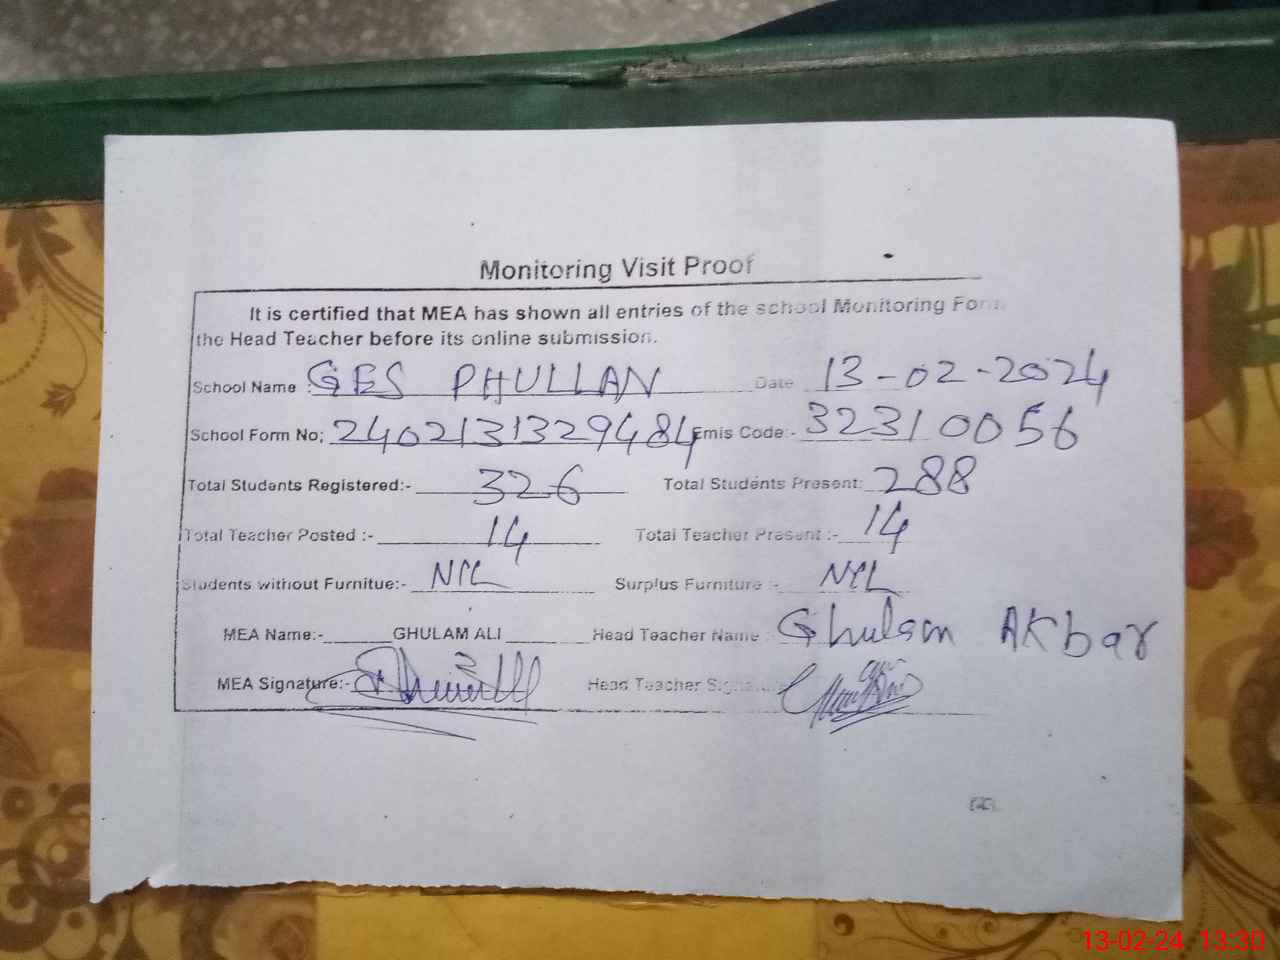 Monitoring Visit Proof
It is certified that MEA has shown all entries of the school Monitoring Form
the Head Teacher before its online submission.
School Name : GES PHULLAN Date 13-02-2024
School Form No; 2402131329484 Emis Code:- 32310056
Total Students Registered:- 326 Total Students Present: 288
Total Teacher Posted :- 14 Total Teacher Present :- 14
Students without Furnitue:- NIL Surplus Furniture :- NIL
MEA Name:- GHULAM ALI Head Teacher Name : Ghulam Akbar
MEA Signature:- Head Teacher Signature
13-02-24 13:30